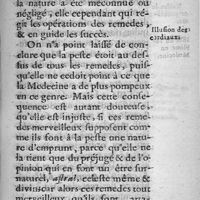 la nature a été méconnue ou
négligé, elle cependant qui ré-
git les opérations des remedes,
& en guide les succès.
Illusion des
cordiaux
On n'a point laissé de con-
clure que la peste étoit au des-
sus de tous les remedes, puis-
qu'elle ne cedoit point à ce que
la Medecine a de plus pompeux
en ce genre. Mais cette conse-
quence est autant douteuse,
qu'elle est injuste, si ces reme-
des merveilleux supposent com-
me ils sont à la peste une natu-
re d'emprunt, parce qu'elle ne
la tient que du préjugé & de l'o-
pinion qui en font un être sur-
naturel, astral, céleste même &
divin; car alors ces remedes tout
merveilleux qu'ils sont